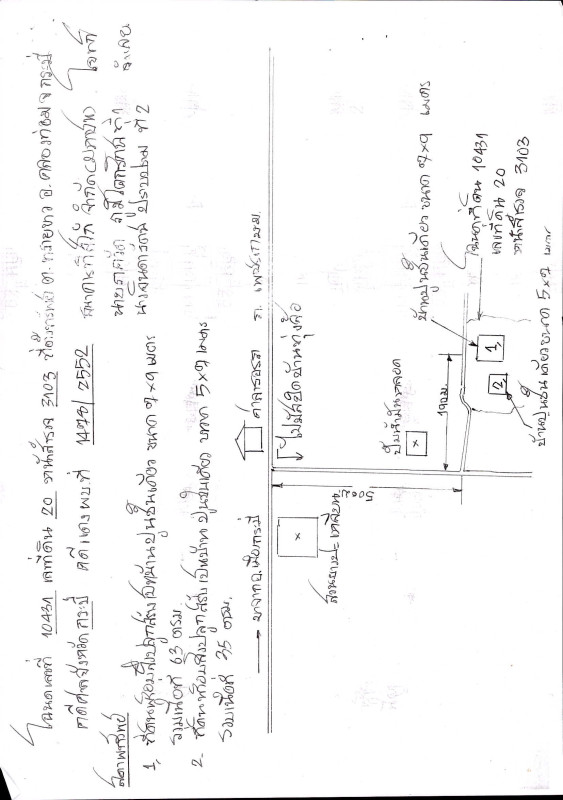 โฉนดเลขที่ 10431 เลขที่ดิน 20 หน้าสำรวจ 3103 ที่ตั้งทรัพย์ ต. ทรายขาว อ. คลองท่อม จ. กระบี่
คดีศาลจังหวัดกระบี่ คดีแดงพบ.ที่ 1473/2552 ธนาคารทิสโก้ จำกัด (มหาชน) โจทก์
ที่ 2 จำเลย
สภาพทรัพย์
1. ที่ดินพร้อมสิ่งปลูกสร้าง เป็นบ้านปูนชั้นเดียว ขนาด 7×9 เมตร
รวมเนื้อที่ 63 ตรม.
2. ที่ดินพร้อมสิ่งปลูกสร้าง เป็นบ้านปูนชั้นเดียว ขนาด 5×7 เมตร
รวมเนื้อที่ 35 ตรม.
มาจาก อ.เมืองกระบี่
ศาลาธอรา
ถ. เพชรเกษม
x
x
ปั๊มน้ำมันหลอด
190 ม.
บ้านปูนชั้นเดียว ขนาด 7×9 เมตร
1.
2.
โฉนดที่ดิน 10431
เลขที่ดิน 20
หน้าสำรวจ 3103
บ้านปูนชั้นเดียวขนาด 5×7 เมตร